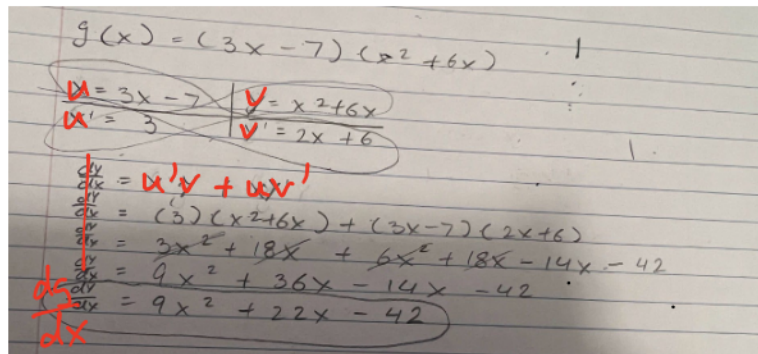 g(x) = (3x - 7) (x² + 6x)
u = 3x - 7 | v = x² + 6x
u' = 3 | v' = 2x + 6
dy/dx = u'v + uv'
dy/dx = (3)(x²+6x) + (3x-7)(2x+6)
dy/dx = 3x² + 18x + 6x² + 18x - 14x - 42
dy/dx = 9x² + 36x - 14x - 42
dg/dx dy/dx = 9x² + 22x - 42